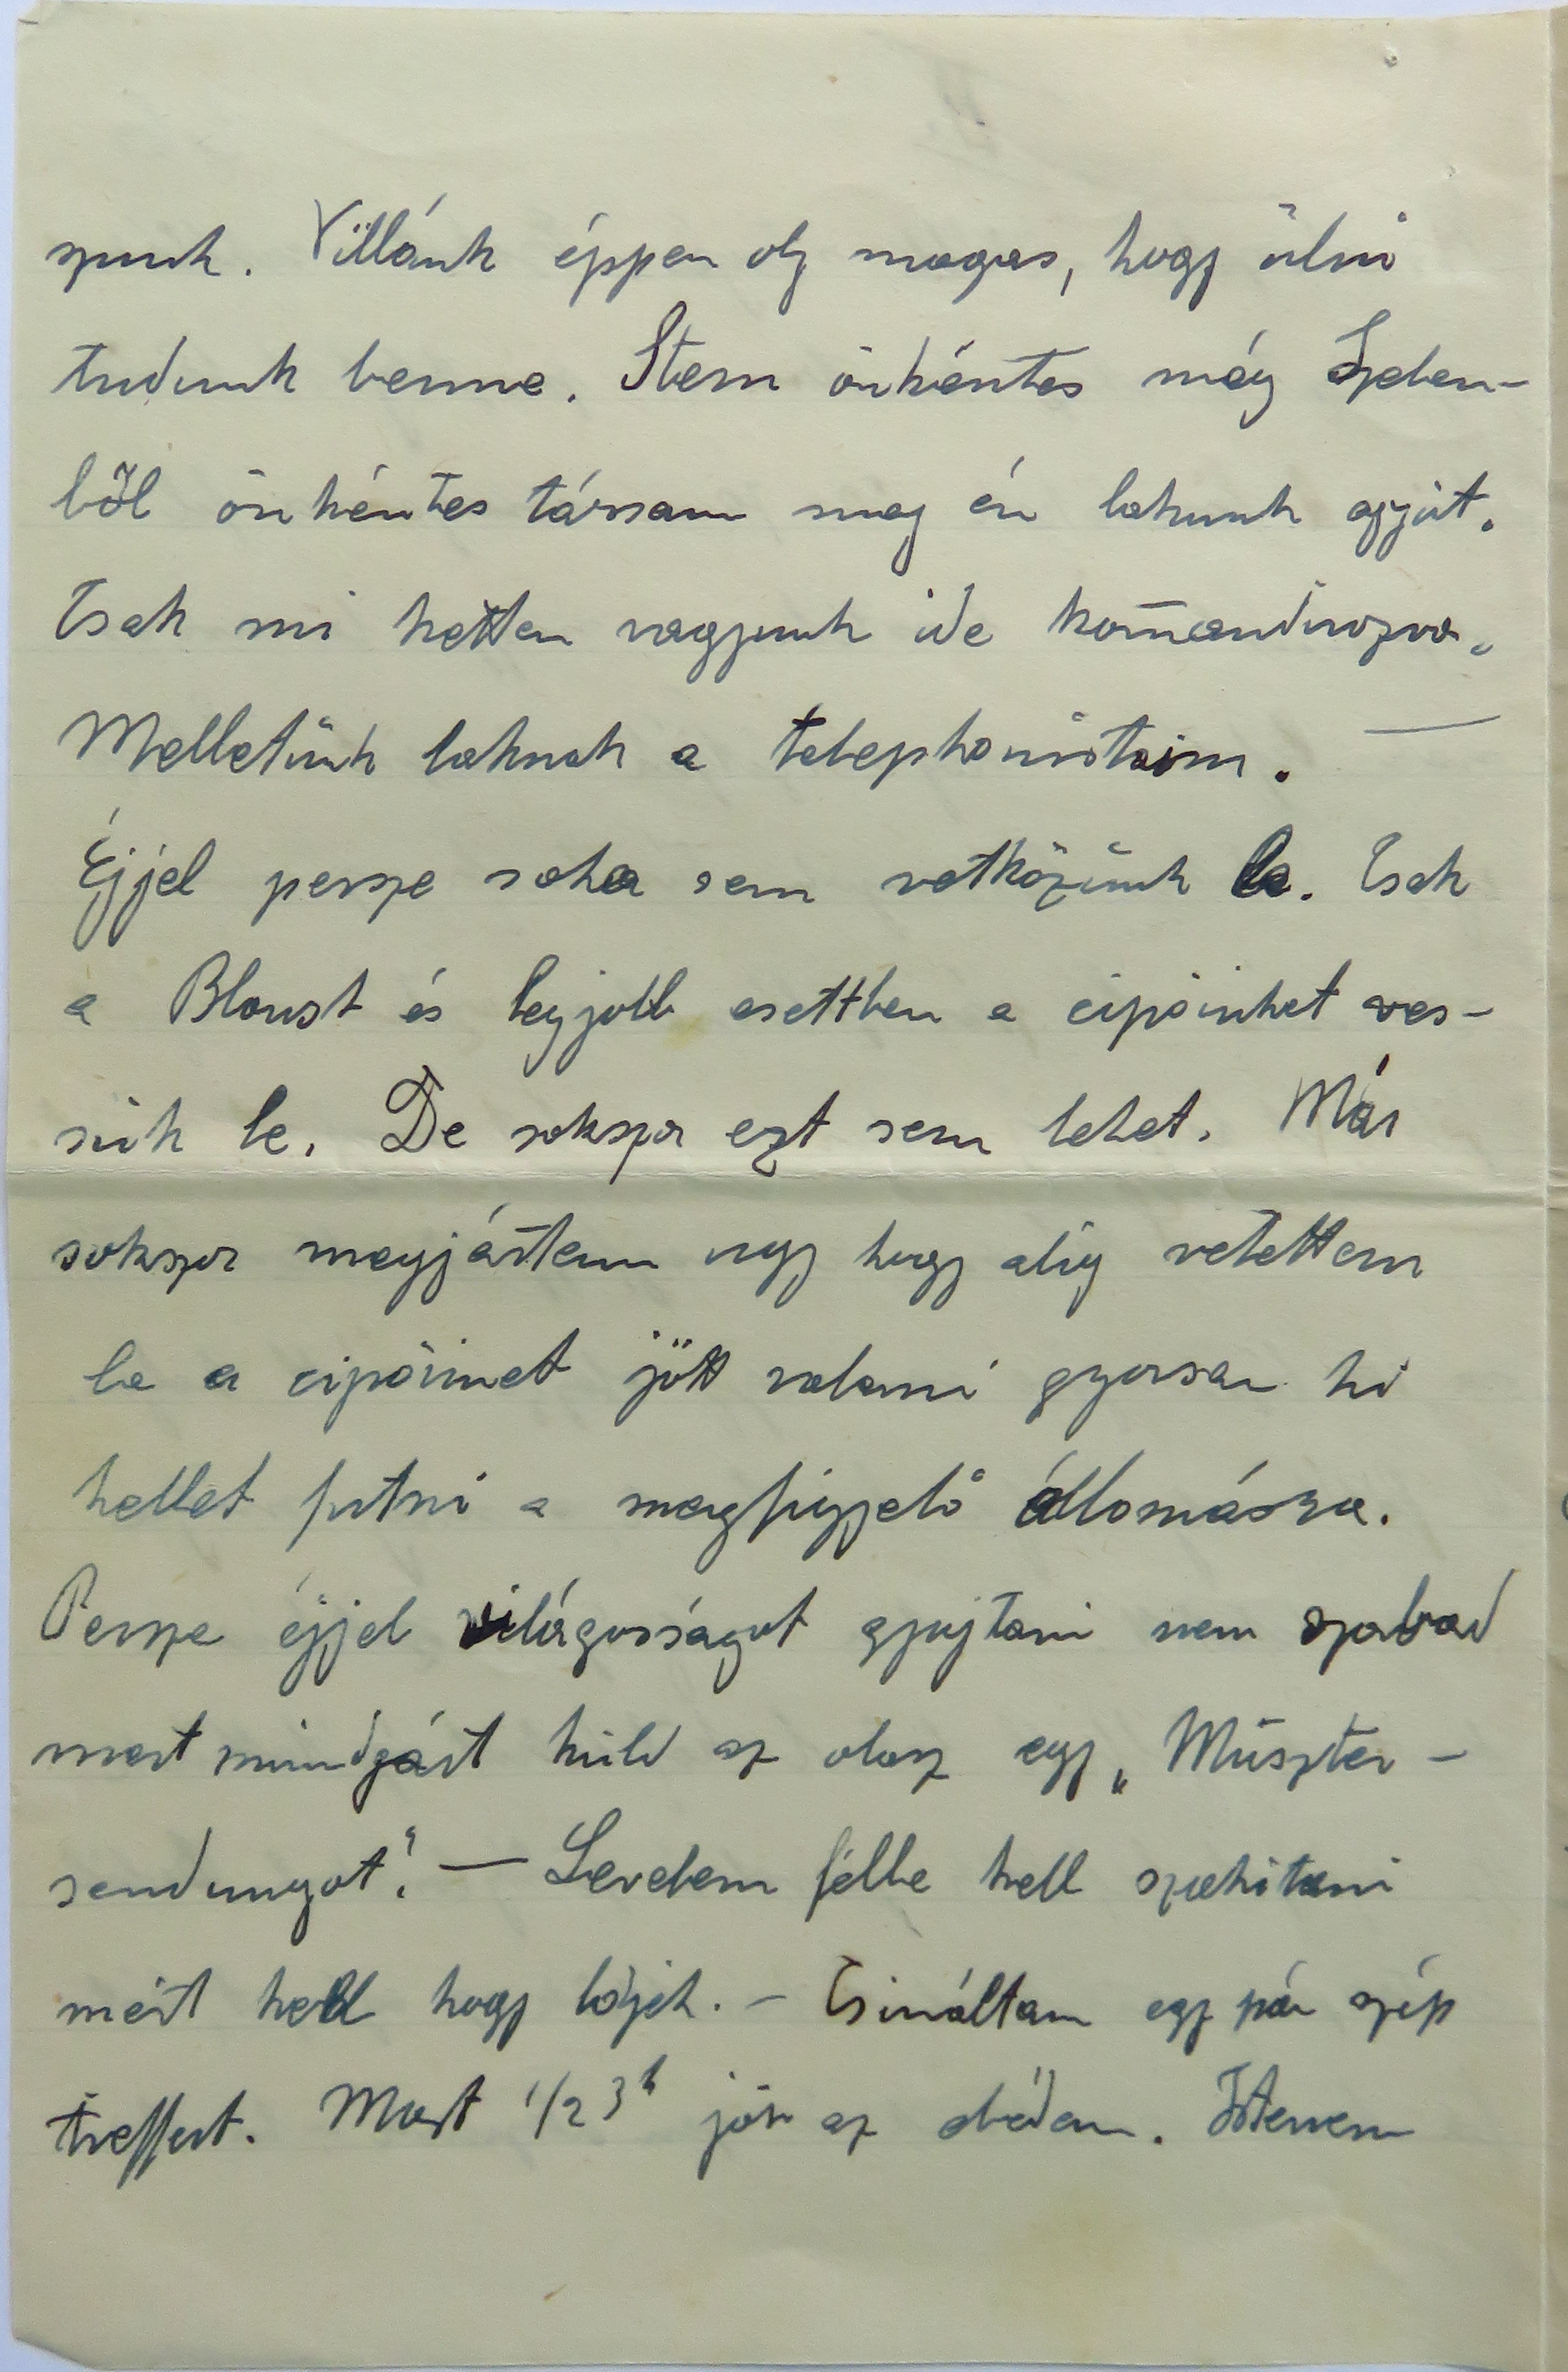 szunk. Villánk éppen oly magas, hogy ülni
tudunk benne. Stern önkéntes még Szeben-
ből önkéntes társam meg én lakunk együt.
Csak mi ketten vagyunk ide kom̄andirozva.
Melletünk laknak a telephonistaim. —
Éjjel persze soha sem vetközünk le. Csak
a Bloust és legjobb esettben a cipőinket ves-
sük le. De sokszor ezt sem lehet. Már
sokszor megjártam ugy hogy alig vetettem
le a cipőimet jött valami gyorsan ki
kellet futni a megfigyelő állomásra.
Persze éjjel világosságot gyujtani nem szabad
mert mindgárt küld az olasz egy „Muszter-
sendungot". — Levelem félbe kell szakitani
mert kell hogy lőjek. - Csináltam egy pár szép
treffert. Most 1/2 3h jön az ebédem. Istenem